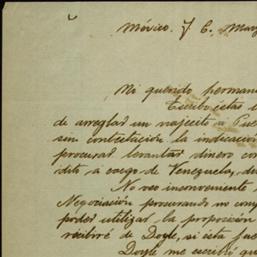 México. 7 C. May
Mi querido herman
Escribo estas
de arreglar un viajecito á Pue
sin contestación la indicació
procurar levantar dinero con
dito á cargo de Venezuela, de
No veo inconveniente
Negociación procurando no com
poder utilizar la proposición
recibiré de Doyle, si ésta fue
Doyle me escribió qu